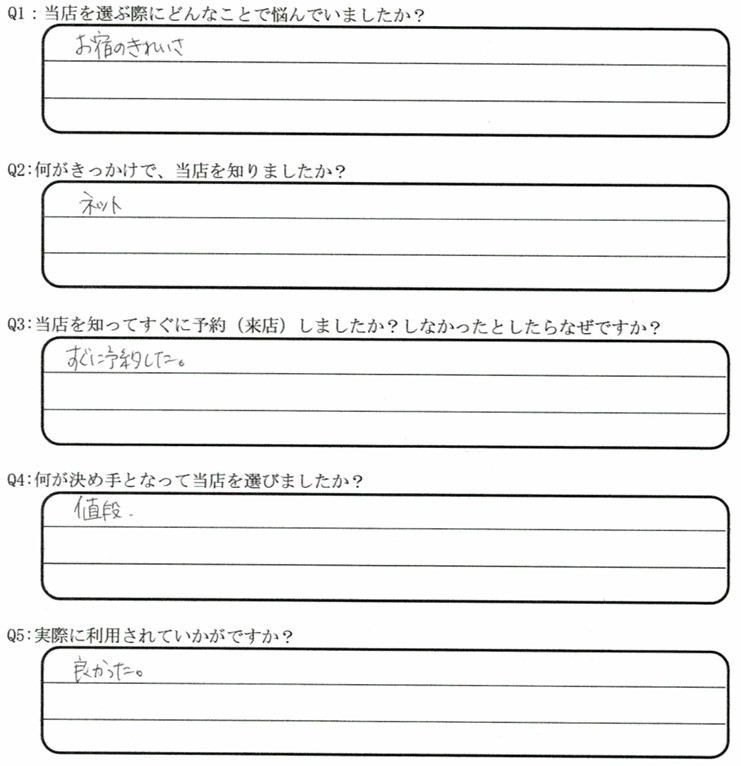 Q1:当店を選ぶ際にどんなことで悩んでいましたか？
お宿のきれいさ
Q2:何がきっかけで、当店を知りましたか？
ネット
Q3:当店を知ってすぐに予約（来店）しましたか？しなかったとしたらなぜですか？
すぐに予約した。
Q4:何が決め手となって当店を選びましたか？
値段.
Q5:実際に利用されていかがですか？
良かった。